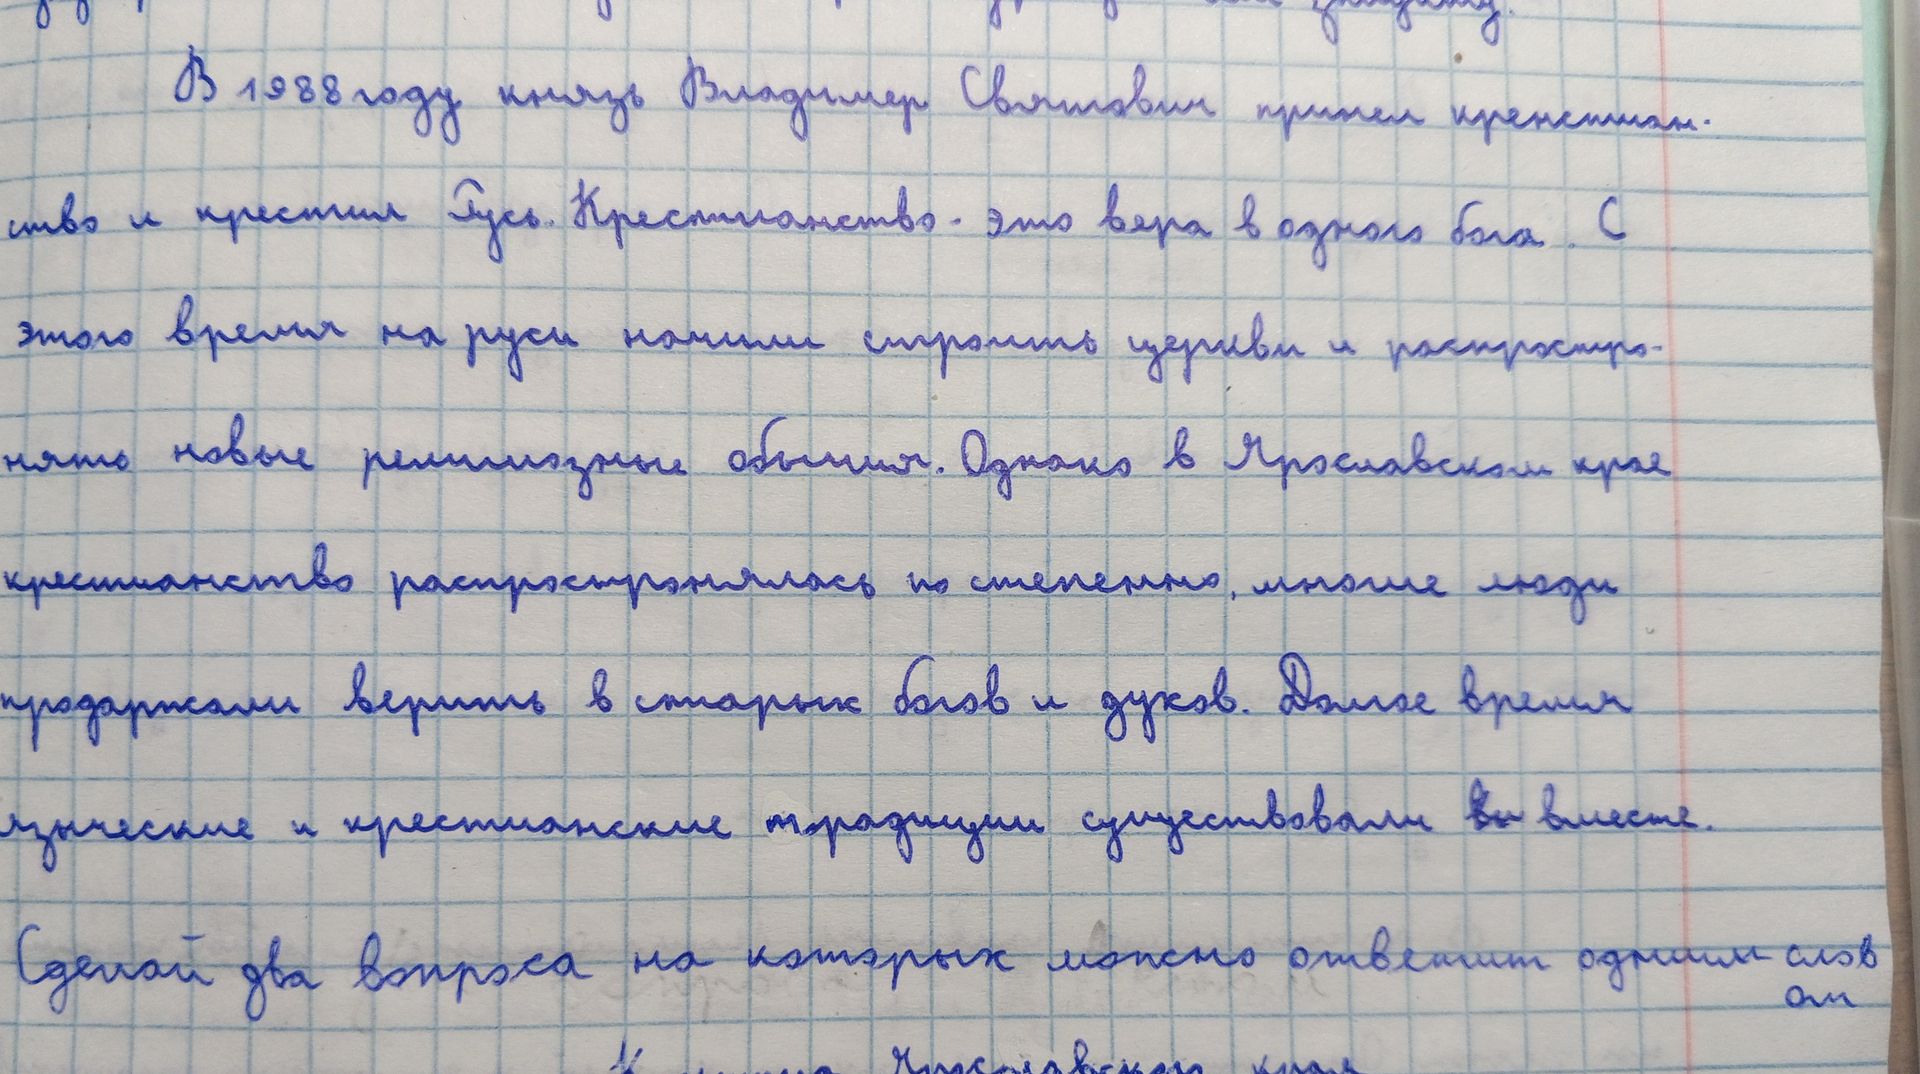 В 1988 году князь Владимер Святович принел кренстиан-
ство и крестил Русь. Крестианство - это вера в одного бога. С
этого время на руси начили строить церкви и распростро-
нять новые религиозные обычия. Однако в Ярославском крае
крестианство распространялась по степенно, многие люди
продаржали верить в старых богов и духов. Долгое время
языческие и крестианские традиции существовали вместе.
Сделай два вопроса на которых можно ответит одним слов
ом
Ярославского края